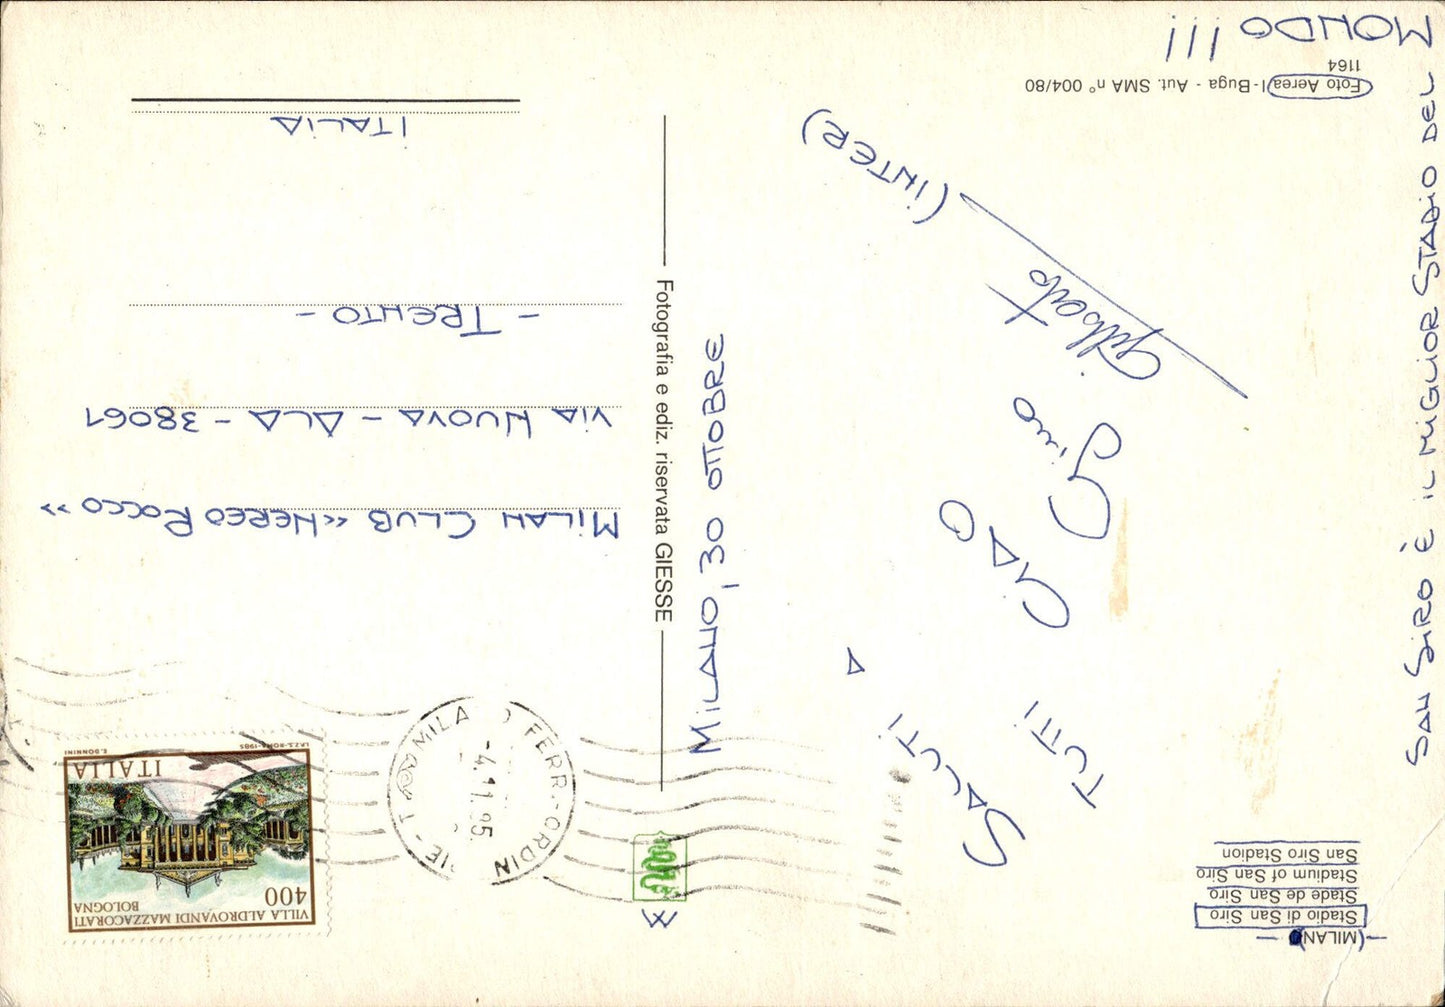 (MILANO)
Stadio di San Siro
Stade de San Siro
Stadium of San Siro
San Siro Stadion
SALUTI A
TUTTI
CIAO
Gino
Gilberto (INTER)
MILANO, 30 OTTOBRE
SAN SIRO È IL MIGLIOR STADIO DEL
MONDO!!!
Foto Aerea I-Buga - Aut. SMA n° 004/80
1164
Fotografia e ediz. riservata GIESSE
VILLA ALDROVANDI MAZZACORATI
BOLOGNA
400
ITALIA
I.P.Z.S.-ROMA-1985
E. DONNINI
MILANO FERR.-ORDINARIE - T
-4.11.85
MILAN CLUB «NEREO ROCCO»
VIA NUOVA - ALA - 38061
- TRENTO -
ITALIA